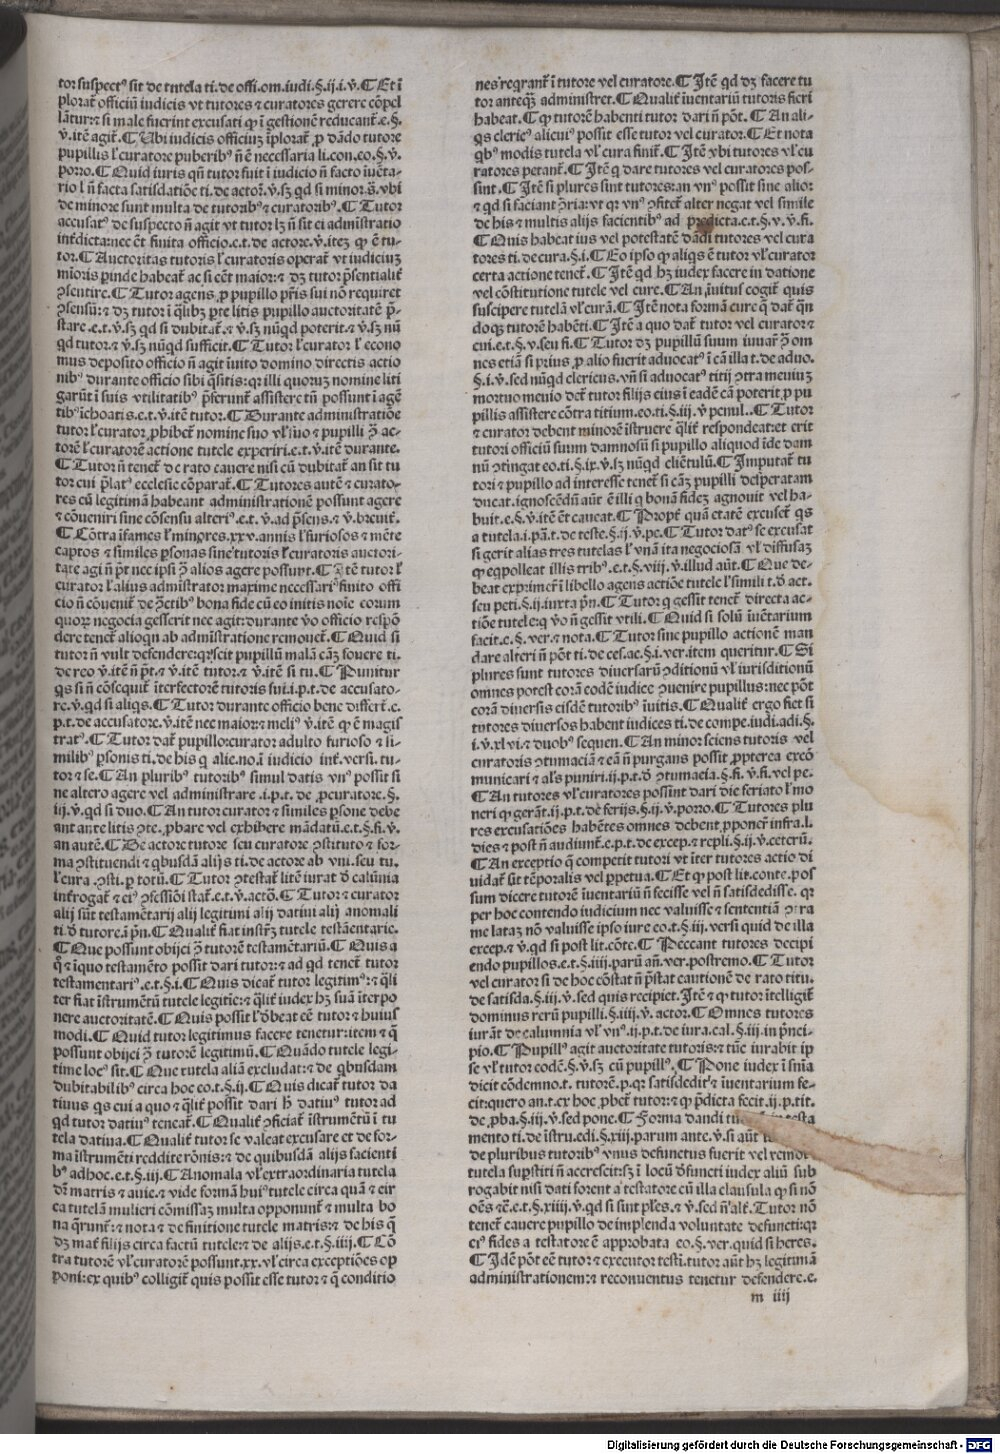 tor suspectꝰ sit de tutela ti. de offi. om. iudi. §. ij. i. v̄. ¶ Et ī
plorat̄ officiū iudicis vt tutores ⁊ curatores gerere cōpel
lāturː ⁊ si male fuerint excusati ꝙ ī gestionē reducant̄. e. §.
v̄. itē agit̄. ¶ Ubi iudicis officiuꝫ īplorat̄ ꝓ dādo tutore
pupillis l' curatore puberibꝰ n̄ ē necessaria li. con. eo. §. v̄.
porro. ¶ Quid iuris qn̄ tutor fuit ī iudicio n̄ facto iuēta-
rio l' n̄ facta satisdatiōe ti. de actor̄. v̄. sꝫ qd si minor. §. vbi
de minore sunt multa de tutoribꝰ ⁊ curatoribꝰ. ¶ Tutor
accusatꝰ de suspecto n̄ agit vt tutor lꝫ n̄ sit ei admistratio
int̄dictaː nec ēt finita officio. e. t. de actore. v̄. iteꝫ ꝙ ē tu-
tor. ¶ Auctoritas tutoris l' curatoris operat̄ vt iudiciuꝫ
mīoris ꝑinde habeat̄ ac si eēt maiorː ⁊ dꝫ tutor p̄sentialit̄
ꝯsentire. ¶ Tutor agens ꝓ pupillo pr̄is sui nō requiret
ꝯsensūː ⁊ dꝫ tutor ī qͥlibꝫ ꝑte litis pupillo auctoritatē p̄-
stare. e. t. v̄. sꝫ qd si dubitat̄. ⁊ v̄. sꝫ nūqd poterit. ⁊ v̄. sꝫ nū
qd tutor. ⁊ v̄. sꝫ nūqd sufficit. ¶ Tutor l' curator l' econo
mus deposito officio n̄ agit īuito domino directis actio
nibꝰ durante officio sibi q̄sitisː qꝛ illi quoruꝫ nomine liti
garūt ī suis vtilitatibꝰ p̄ferunt̄ assistere tn̄ possunt ī agē
tibꝰ īchoatis. e. t. v̄. itē tutor. ¶ Durante administratiōe
tutor l' curator ꝓhibet̄ nomine suo vl' suo ⁊ pupilli ꝯ ac-
torē l' curatorē actione tutele experiri. e. t. v̄. itē durante.
¶ Tutor n̄ tenet̄ de rato cauere nisi cū dubitat̄ an sit tu
tor cui p̄lat̄ ecclesie cōparat̄. ¶ Tutores autē ⁊ curato-
res cū legitimā habeant administrationē possunt agere
⁊ cōueniri sine cōsensu alteriꝰ. e. t. v̄. ad p̄sens. ⁊ v̄. breuit̄.
¶ Cōtra īfames l' minores. xxv. annis l' furiosos ⁊ mēte
captos ⁊ similes ꝑsonas sine tutoris l' curatoris auctori-
tate agi n̄ pōt nec ipsi ꝯ alios agere possunt. ¶ Itē tutor l'
curator l' alius admīstrator maxime necessariꝰ finito offi
cio n̄ cōuenit̄ de ꝯctibꝰ bona fide cū eo initis noīe eorum
quoꝝ negocia gesserit nec agitː durante vō officio respō
dere tenet̄ alioqn ab admīstratione remouet̄. ¶ Quid si
tutor n̄ vult defendereː qꝛ scit pupillū malā cāꝫ fouere ti.
de reo v̄. itē n̄ pt̄. ⁊ v̄. itē tutor. ⁊ v̄. itē si tu. ¶ Punitur
qs si n̄ cōsequit̄ īterfectorē tutoris sui. i. p. t. de accusato-
re. v̄. qd si aliqs. ¶ Tutor durante officio bene differt̄. e.
p. t. de accusatore. v̄. itē nec maiorː ⁊ meliꝰ v̄. itē ꝙ ē magis
tratꝰ. ¶ Tutor dat̄ pupilloː curator adulto furioso ⁊ si-
milibꝰ ꝑsonis ti. de his q̄ alie. no. ī iudicio int̄. versi. tu-
tor ⁊ se. ¶ An pluribꝰ tutoribꝰ simul datis vnꝰ possit si
ne altero agere vel administrare. i. p. t. de ꝓcuratore. §.
iij. v̄. qd si duo. ¶ An tutor curator ⁊ similes ꝑsone debe
ant ante litis ꝯte. ꝓbare vel exhibere mādatū. e. t. §. fi. v̄.
an autē. ¶ De actore tutore seu curatore ꝯstituto ⁊ for-
ma ꝯstituendi ⁊ qbusdā alijs ti. de actore ab vni. seu tu.
l' cura. ꝯsti. ꝑ totū. ¶ Tutor ꝯtestat̄ litē iurat d̄ calūnia
int̄rogat̄ ⁊ eiꝰ ꝯfessiōi stat̄. e. t. v̄. actō. ¶ Tutor ⁊ curator
alij sūt testamētarij alij legitimi alij datiui alij anomali
ti. d̄ tutore. ī pn̄. ¶ Qualit̄ fiat instr̄ꝫ tutele testāentarie.
¶ Que possunt obijci ꝯ tutorē testamētariū. ¶ Quis a
q̄ ⁊ īquo testamēto possit dari tutorː ⁊ ad qd tenet̄ tutor
testamentariꝰ. e. t. §. i. ¶ Quis dicat̄ tutor legitimꝰː ⁊ q̄li
ter fiat īstrumētū tutele legitīeː ⁊ q̄lit̄ iudex hꝫ suā īterpo
nere auctoritatē. ¶ Quis possit l' d̄beat eē tutor ⁊ huius
modi. ¶ Quid tutor legitimus facere teneturː item ⁊ q̄
possunt obijci ꝯ tutorē legitimū. ¶ Quādo tutele legi-
time locꝰ sit. ¶ Que tutela alias excludatː ⁊ de qbusdam
dubitabilibꝰ circa hoc eo. t. §. ij. ¶ Quis dicat̄ tutor da
tiuus qs cui a quo ⁊ q̄lit̄ possit dari h̄ datiuꝰ tutor ad
qd tutor datiuꝰ teneat̄. ¶ Qualit̄ ꝯficiat̄ īstrumētū ī tu
tela datiua. ¶ Qualit̄ tutor se valeat excusare et de for-
ma īstrumenti reddite rōnisː ⁊ de quibusdā alijs facienti
bꝰ adhoc. e. t. §. iij. ¶ Anomala vl' extraordinaria tutela
dr̄ matris ⁊ auieː ⁊ vide formā huiꝰ tutele circa quā ⁊ cir
ca tutelam mulieri cōmissaꝫ multa opponunt̄ ⁊ multa bo
na q̄runt̄ː ⁊ nota ⁊ de finitione tutele matrisː ⁊ de his q̄
dꝫ mat̄ filijs circa factū tuteleː ⁊ de alijs. e. t. §. iiij. ¶ Cō
tra tutorē vl' curatorē possunt. xx. vl' circa exceptiōes op
poniː ex quibꝰ colligit̄ quis possit esse tutor ⁊ q̄ conditio
nes reqrant̄ ī tutore vel curatore. ¶ Itē qd dꝫ facere tu
tor anteqꝫ administret. ¶ Qualit̄ īuentariū tutoris fieri
habeat. ¶ ꝙ tutorē habenti tutor dari n̄ pōt. ¶ An ali-
qs clericꝰ alicuiꝰ possit esse tutor vel curator. ¶ Et nota
qbꝰ modis tutela vl' cura finit̄. ¶ Itē vbi tutores vl' cu
ratores petant̄. ¶ Itē q dare tutores vel curatores pos-
sint. ¶ Itē si plures sint tutoresː an vnꝰ possit sine alioꝝ
⁊ qd si faciant ꝯriaː vt qꝛ vnꝰ ꝯfitet̄ alter negat vel simile
de his ⁊ multis alijs facientibꝰ ad predicta. e. t. §. v. v̄. fi.
¶ Quis habeat ius vel potestatē dādi tutores vel cura
tores ti. de cura. §. i. ¶ Eo ipso ꝙ aliqs ē tutor vl' curator
certa actione tenet̄. ¶ Itē qd hꝫ iudex facere in datione
vel cōstitutione tutele vel cure. ¶ An īuitus cogit̄ quis
suscipere tutelā vl' curā. ¶ Itē nota formā cure q̄ dat̄ qn̄
doqꝫ tutorē habēti. ¶ Itē a quo dat̄ tutor vel curator ⁊
cui. e. t. §. v. seu fi. ¶ Tutor dꝫ pupillū suum iuuar̄ ꝯ om
nes etiā si prius ꝓ alio fuerit aduocatꝰ ī cā illa t. de aduo.
§. i. v̄. sed nūqd clericus. vn̄ si aduocatꝰ titij ꝯtra meuiuꝫ
mortuo meuio det̄ tutor filijs eius ī eadē cā poterit ꝓ pu
pillis assistere cōtra titium. eo. ti. §. iij. v̄ penul.. ¶ Tutor
⁊ curator debent minorē īstruere q̄lit̄ respondeatː et erit
tutori officiū suum damnosū si pupillo aliquod īde dam
nū ꝯtingat eo. ti. §. ix. v̄. sꝫ nūqd cliētulū. ¶ Imputat̄ tu
tori ⁊ pupillo ad interesse tenet̄ si cāꝫ pupilli desꝑatam
ducat. ignoscēdū aūt ē illi q bonā fideꝫ agnouit vel ha-
buit. e. §. v̄. itē ēt caueat. ¶ Propt̄ quā etatē excuset̄ qs
a tutela. i. pā. t. de teste. §. ij. v̄. pe. ¶ Tutor datꝰ se excusat
si gerit alias tres tutelas l' vnā ita negociosā vl' diffusaꝫ
ꝙ eqpolleat illis tribꝰ. e. t. §. viij. v̄. illud aūt. ¶ Que de-
beat exprimer̄ ī libello agens actiōe tutele l' simili t. d̄ act.
seu peti. §. ij. iuxta pn̄. ¶ Tutor q gessit tenet̄ directa ac-
tiōe tuteleː q vō n̄ gessit vtili. ¶ Quid si solū īuētarium
facit. e. §. ver. ⁊ nota. ¶ Tutor sine pupillo actionē man
dare alteri n̄ pōt ti. de ces. ac. §. i. ver. item queritur. ¶ Si
plures sunt tutores diuersarū ꝯditionū vl' iurisdictionū
omnes potest corā eodē iudice ꝯuenire pupillusː nec pōt
corā diuersis eisdē tutoribꝰ īuitis. ¶ Qualit̄ ergo fiet si
tutores diuersos habent iudices ti. de compe. iudi. adi. §.
i. v̄. xl. vi ⁊ duobꝰ sequen. ¶ An minor sciens tutoris vel
curatoris ꝯtumaciā ⁊ eā n̄ purgans possit ꝓpterea excō
municari ⁊ al's puniri. ij. p. t. d̄ ꝯtumacia. §. fi. v̄. fi. vel pe.
¶ An tutores vl' curatores possint dari die feriato l' mo
neri ꝙ gerāt. ij. p. t. de ferijs. §. ij. v̄. porro. ¶ Tutores plu
res excusatiōes habētes omnes debent ꝓponer̄ infra. l.
dies ⁊ post n̄ audiunt̄. e. p. t. de excep. ⁊ repli. §. ij. v. ceterū.
¶ An exceptio q̄ competit tutori vt īter tutores actio di
uidat̄ sit tēporalis vel ꝑpetua. ¶ Et ꝙ post lit. conte. pos
sum dicere tutorē īuentariū n̄ fecisse vel n̄ satisdedisse. qꝛ
per hoc contendo iudicium nec valuisse ⁊ sententiā ꝯtra
me lataꝫ nō valuisse ipso iure eo. t. §. iij. versi quid de illa
excep. ⁊ v̄. qd si post lit. cōte. ¶ Peccant tutores decipi
endo pupillos. e. t. §. iiij. parū an̄. ver. postremo. ¶ Tutor
vel curator si de hoc cōstat n̄ p̄stat cautionē de rato titu.
de satisda. §. iij. v̄. sed quis recipiet. Itē ⁊ ꝙ tutor ītelligit̄
dominus rerū pupilli. §. iiij. v̄. actor. ¶ Omnes tutores
iurāt de calumnia vl' vnꝰ. ij. p. t. de iura. cal. §. iij. in p̄nci-
pio. ¶ Pupillꝰ agit auctoritate tutorisː ⁊ tūc iurabit ip
se vl' tutor eodē. §. v̄. sꝫ cū pupillꝰ. ¶ Pone iudex ī snīa
dicit cōdemno. t. tutorē. p. qꝛ satisdedit ⁊ īuentarium fe-
citː quero an. t. ex hoc ꝓbet̄ tutorː ⁊ ꝙ p̄dicta fecit. ij. p. tit.
de ꝓba. §. iij. v̄. sed pone. ¶ Forma dandi tu in testa
mento ti. de īstru. edi. §. xiij. parum ante. v̄. si aūt
de pluribus tutoribꝰ vnus defunctus fuerit vel remo
tutela suꝑstiti n̄ accrescitː sꝫ ī locū d̄functi iudex aliū sub
rogabit nisi dati forent a testatore cū illa clausula ꝙ si nō
oēs ⁊c̄. e. t. §. xiiij. v̄. qd si sunt pl'es. ⁊ v̄. sed n̄ alt̄. Tutor nō
tenet̄ cauere pupillo de implenda voluntate defunctiː qꝛ
eiꝰ fides a testatore ē approbata eo. §. ver. quid si heres.
¶ Idē pōt eē tutor ⁊ executor testi. tutor aūt hꝫ legitimā
administrationemː ⁊ reconuentus tenetur defendere. e.
m iiij
Digitalisierung gefördert durch die Deutsche Forschungsgemeinschaft - DFG